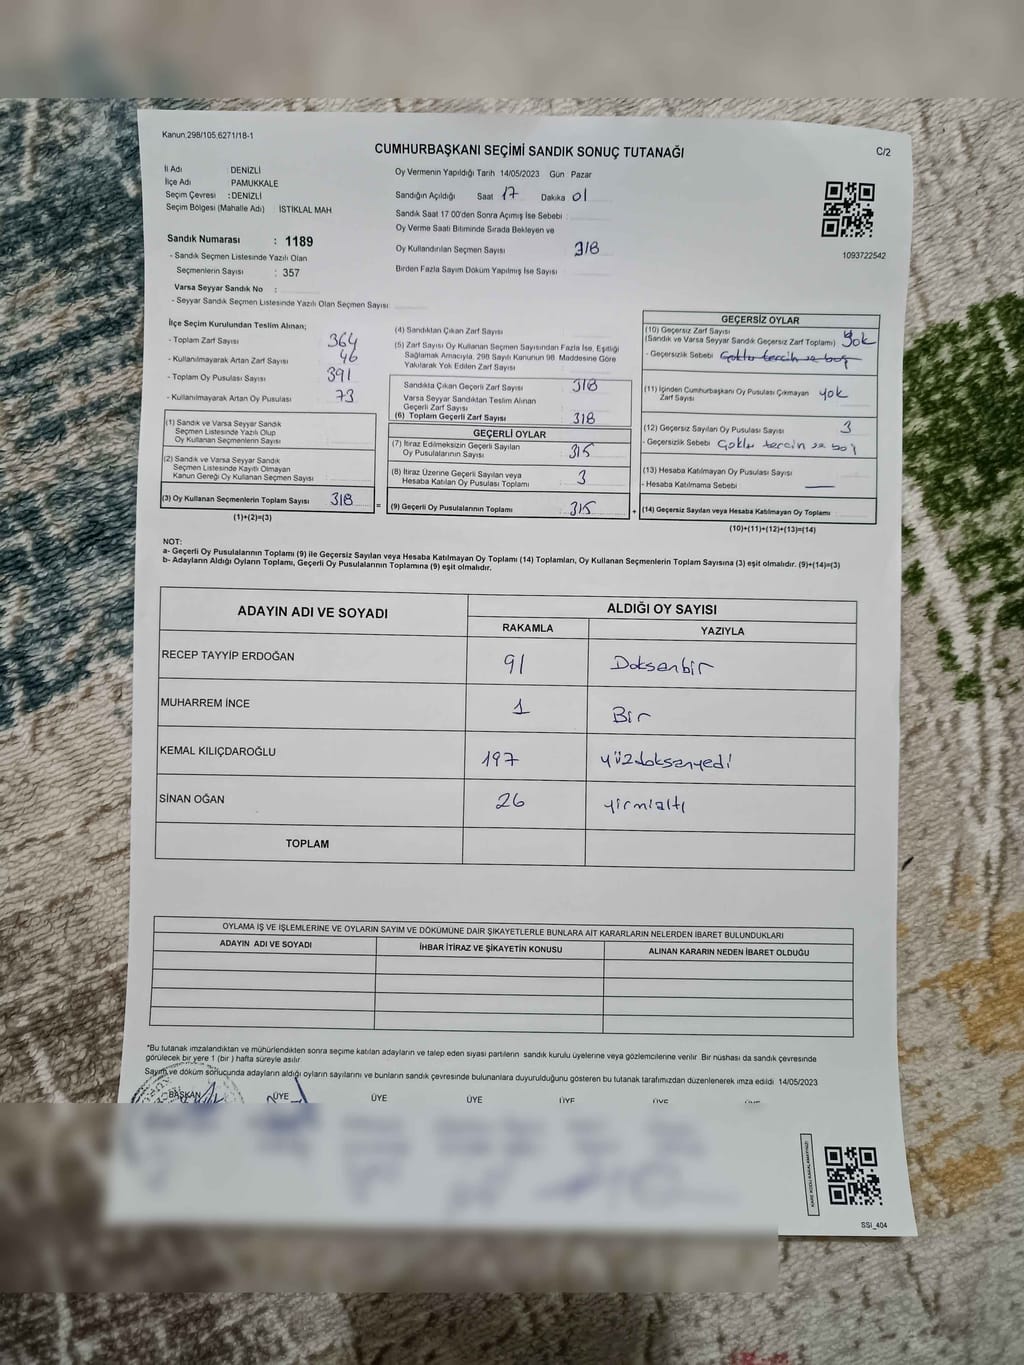 Kanun,298/105,6271/18-1
CUMHURBAŞKANI SEÇİMİ SANDIK SONUÇ TUTANAĞI
C/2
İl Adı : DENİZLİ
İlçe Adı PAMUKKALE
Seçim Çevresi : DENİZLİ
Seçim Bölgesi (Mahalle Adı) : İSTİKLAL MAH
Sandık Numarası : 1189
- Sandık Seçmen Listesinde Yazılı Olan
Seçmenlerin Sayısı : 357
Varsa Seyyar Sandık No :
- Seyyar Sandık Seçmen Listesinde Yazılı Olan Seçmen Sayısı:
Oy Vermenin Yapıldığı Tarih 14/05/2023 Gün Pazar
Sandığın Açıldığı Saat 17 Dakika 01
Sandık Saat 17 00'den Sonra Açımış İse Sebebi :
Oy Verme Saati Bitiminde Sırada Bekleyen ve
Oy Kullandırılan Seçmen Sayısı 318
Birden Fazla Sayım Döküm Yapılmış İse Sayısı
1093722542
İlçe Seçim Kurulundan Teslim Alınan;
- Toplam Zarf Sayısı 364
- Kullanılmayarak Artan Zarf Sayısı 46
- Toplam Oy Pusulası Sayısı 391
- Kullanılmayarak Artan Oy Pusulası 73
(1) Sandık ve Varsa Seyyar Sandık
Seçmen Listesinde Yazılı Olup
Oy Kullanan Seçmenlerin Sayısı
(2) Sandık ve Varsa Seyyar Sandık
Seçmen Listesinde Kayıtlı Olmayan
Kanun Gereği Oy Kullanan Seçmen Sayısı
(3) Oy Kullanan Seçmenlerin Toplam Sayısı 318
(1)+(2)=(3)
(4) Sandıktan Çıkan Zarf Sayısı
(5) Zarf Sayısı Oy Kullanan Seçmen Sayısından Fazla İse, Eşitliği
Sağlamak Amacıyla, 298 Sayılı Kanunun 98. Maddesine Göre
Yakılarak Yok Edilen Zarf Sayısı
Sandıkta Çıkan Geçerli Zarf Sayısı 318
Varsa Seyyar Sandıktan Teslim Alınan
Geçerli Zarf Sayısı
(6) Toplam Geçerli Zarf Sayısı 318
GEÇERLİ OYLAR
(7) İtiraz Edilmeksizin Geçerli Sayılan
Oy Pusulalarının Sayısı 315
(8) İtiraz Üzerine Geçerli Sayılan veya
Hesaba Katılan Oy Pusulası Toplamı 3
= (9) Geçerli Oy Pusulalarının Toplamı 315
GEÇERSİZ OYLAR
(10) Geçersiz Zarf Sayısı
(Sandık ve Varsa Seyyar Sandık Geçersiz Zarf Toplamı) Yok
- Geçersizlik Sebebi Çoklu tercih ve boş
(11) İçinden Cumhurbaşkanı Oy Pusulası Çıkmayan
Zarf Sayısı yok
(12) Geçersiz Sayılan Oy Pusulası Sayısı 3
- Geçersizlik Sebebi Çoklu tercih ve boş
(13) Hesaba Katılmayan Oy Pusulası Sayısı
- Hesaba Katılmama Sebebi
+ (14) Geçersiz Sayılan veya Hesaba Katılmayan Oy Toplamı
(10)+(11)+(12)+(13)=(14)
NOT:
a- Geçerli Oy Pusulalarının Toplamı (9) ile Geçersiz Sayılan veya Hesaba Katılmayan Oy Toplamı (14) Toplamları, Oy Kullanan Seçmenlerin Toplam Sayısına (3) eşit olmalıdır. (9)+(14)=(3)
b- Adayların Aldığı Oyların Toplamı, Geçerli Oy Pusulalarının Toplamına (9) eşit olmalıdır.
ADAYIN ADI VE SOYADI ALDIĞI OY SAYISI
RAKAMLA YAZIYLA
RECEP TAYYİP ERDOĞAN 91 Doksanbir
MUHARREM İNCE 1 Bir
KEMAL KILIÇDAROĞLU 197 yüzdoksanyedi
SİNAN OĞAN 26 yirmialtı
TOPLAM
OYLAMA İŞ VE İŞLEMLERİNE VE OYLARIN SAYIM VE DÖKÜMÜNE DAİR ŞİKAYETLERLE BUNLARA AİT KARARLARIN NELERDEN İBARET BULUNDUKLARI
ADAYIN ADI VE SOYADI İHBAR İTİRAZ VE ŞİKAYETİN KONUSU ALINAN KARARIN NEDEN İBARET OLDUĞU
*Bu tutanak imzalandıktan ve mühürlendikten sonra seçime katılan adayların ve talep eden siyasi partilerin sandık kurulu üyelerine veya gözlemcilerine verilir. Bir nüshası da sandık çevresinde
görülecek bir yere 1 (bir) hafta süreyle asılır.
Sayım ve döküm sonucunda adayların aldığı oyların sayılarını ve bunların sandık çevresinde bulunanlara duyurulduğunu gösteren bu tutanak tarafımızdan düzenlenerek imza edildi 14/05/2023
BAŞKAN ÜYE ÜYE ÜYE ÜYE ÜYE ÜYE
SSİ_404